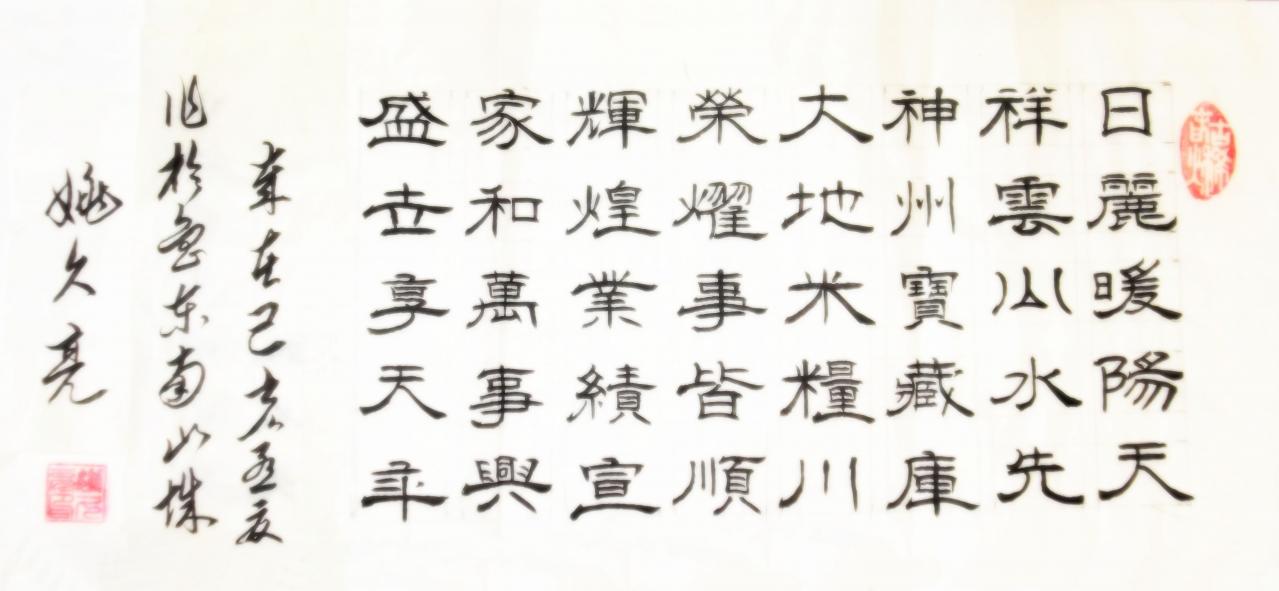 日麗暖陽天
祥雲山水先
神州寶藏庫
大地米糧川
榮耀事皆順
輝煌業績宣
家和萬事興
盛世享天年
在己
作於魯東南山
姚久亮